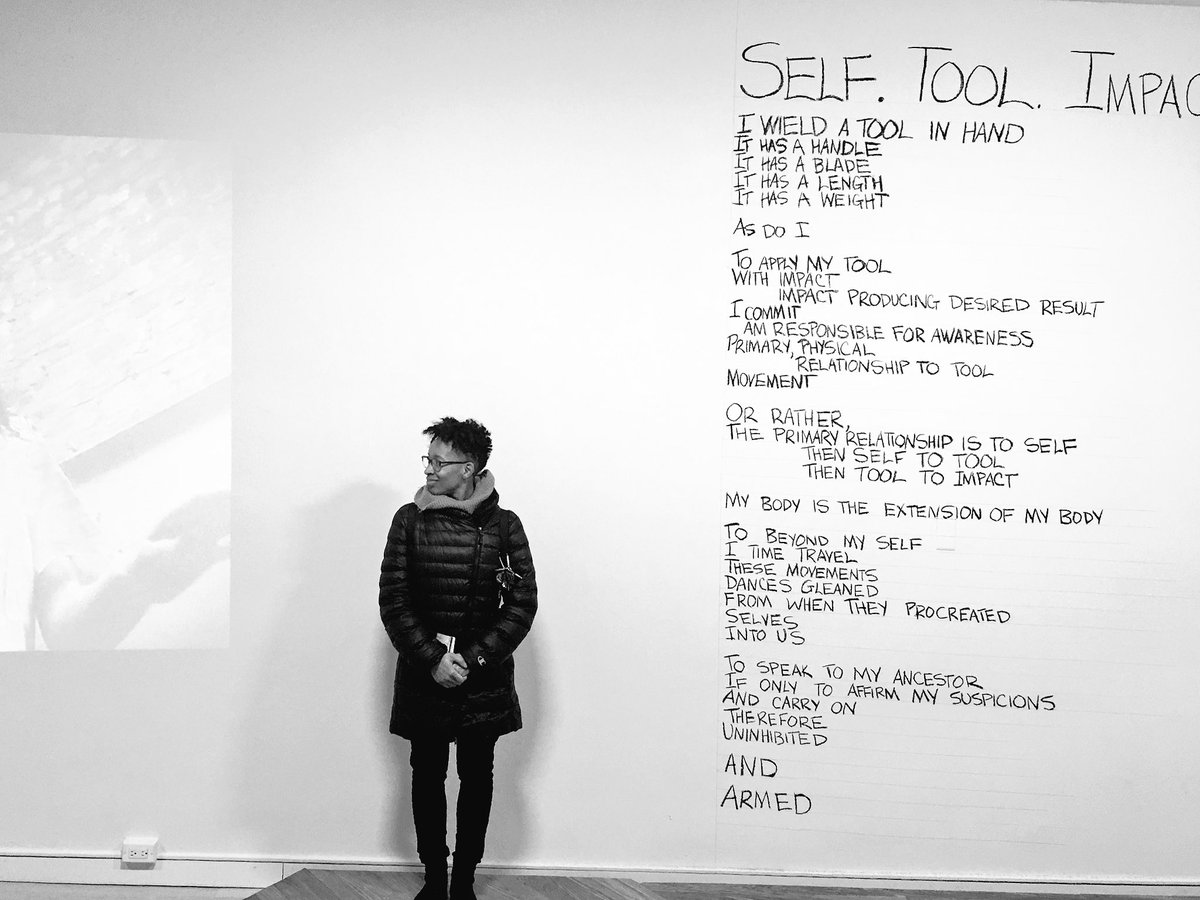 SELF. TOOL. IMPAC
I WIELD A TOOL IN HAND
IT HAS A HANDLE
IT HAS A BLADE
IT HAS A LENGTH
IT HAS A WEIGHT
AS DO I
TO APPLY MY TOOL
WITH IMPACT
IMPACT PRODUCING DESIRED RESULT
I COMMIT
AM RESPONSIBLE FOR AWARENESS
PRIMARY, PHYSICAL
RELATIONSHIP TO TOOL
MOVEMENT
OR RATHER,
THE PRIMARY RELATIONSHIP IS TO SELF
THEN SELF TO TOOL
THEN TOOL TO IMPACT
MY BODY IS THE EXTENSION OF MY BODY
TO BEYOND MY SELF
I TIME TRAVEL
THESE MOVEMENTS
DANCES GLEANED
FROM WHEN THEY PROCREATED
SELVES
INTO US
TO SPEAK TO MY ANCESTOR
IF ONLY TO AFFIRM MY SUSPICIONS
AND CARRY ON
THEREFORE
UNINHIBITED
AND
ARMED